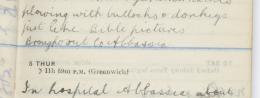 plowing with bullocks & donkeys
just like Bible pictures
Brought out to Abbassia
5 THUR
11h 19m P.M. (Greenwich)
In hospital Abbassia about